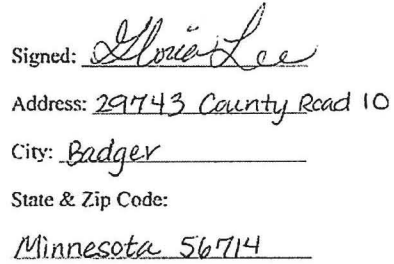 Signed: Gloria Lee
Address: 29743 County Road 10
City: Badger
State & Zip Code:
Minnesota 56714